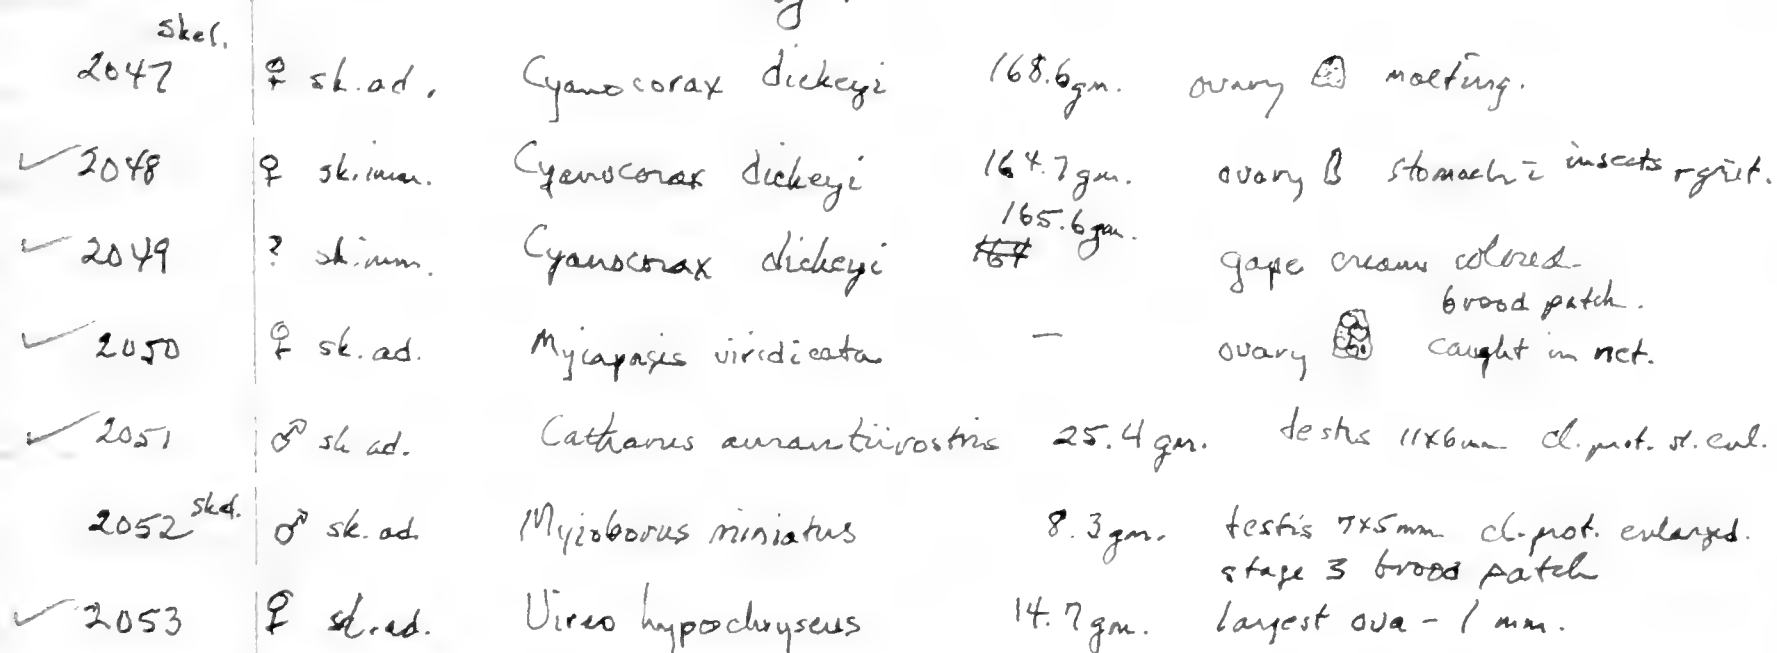 skel.
2047 ♀ sk. ad. Cyanocorax dickeyi 168.6 gm. ovary molting.
2048 ♀ sk. imm. Cyanocorax dickeyi 164.7 gm. ovary stomach c̄ insects + grit.
165.6 gm.
2049 ? sk. imm. Cyanocorax dickeyi 164 gape cream colored
brood patch.
2050 ♀ sk. ad. Myiopagis viridicata — ovary caught in net.
2051 ♂ sk ad. Catharus aurantiirostris 25.4 gm. testis 11x6mm cl. prot. sl. enl.
2052 skel. ♂ sk. ad. Myioborus miniatus 8.3 gm. testis 7x5mm cl. prot. enlarged.
stage 3 brood patch
2053 ♀ sk. ad. Vireo hypochryseus 14.7 gm. largest ova - 1 mm.